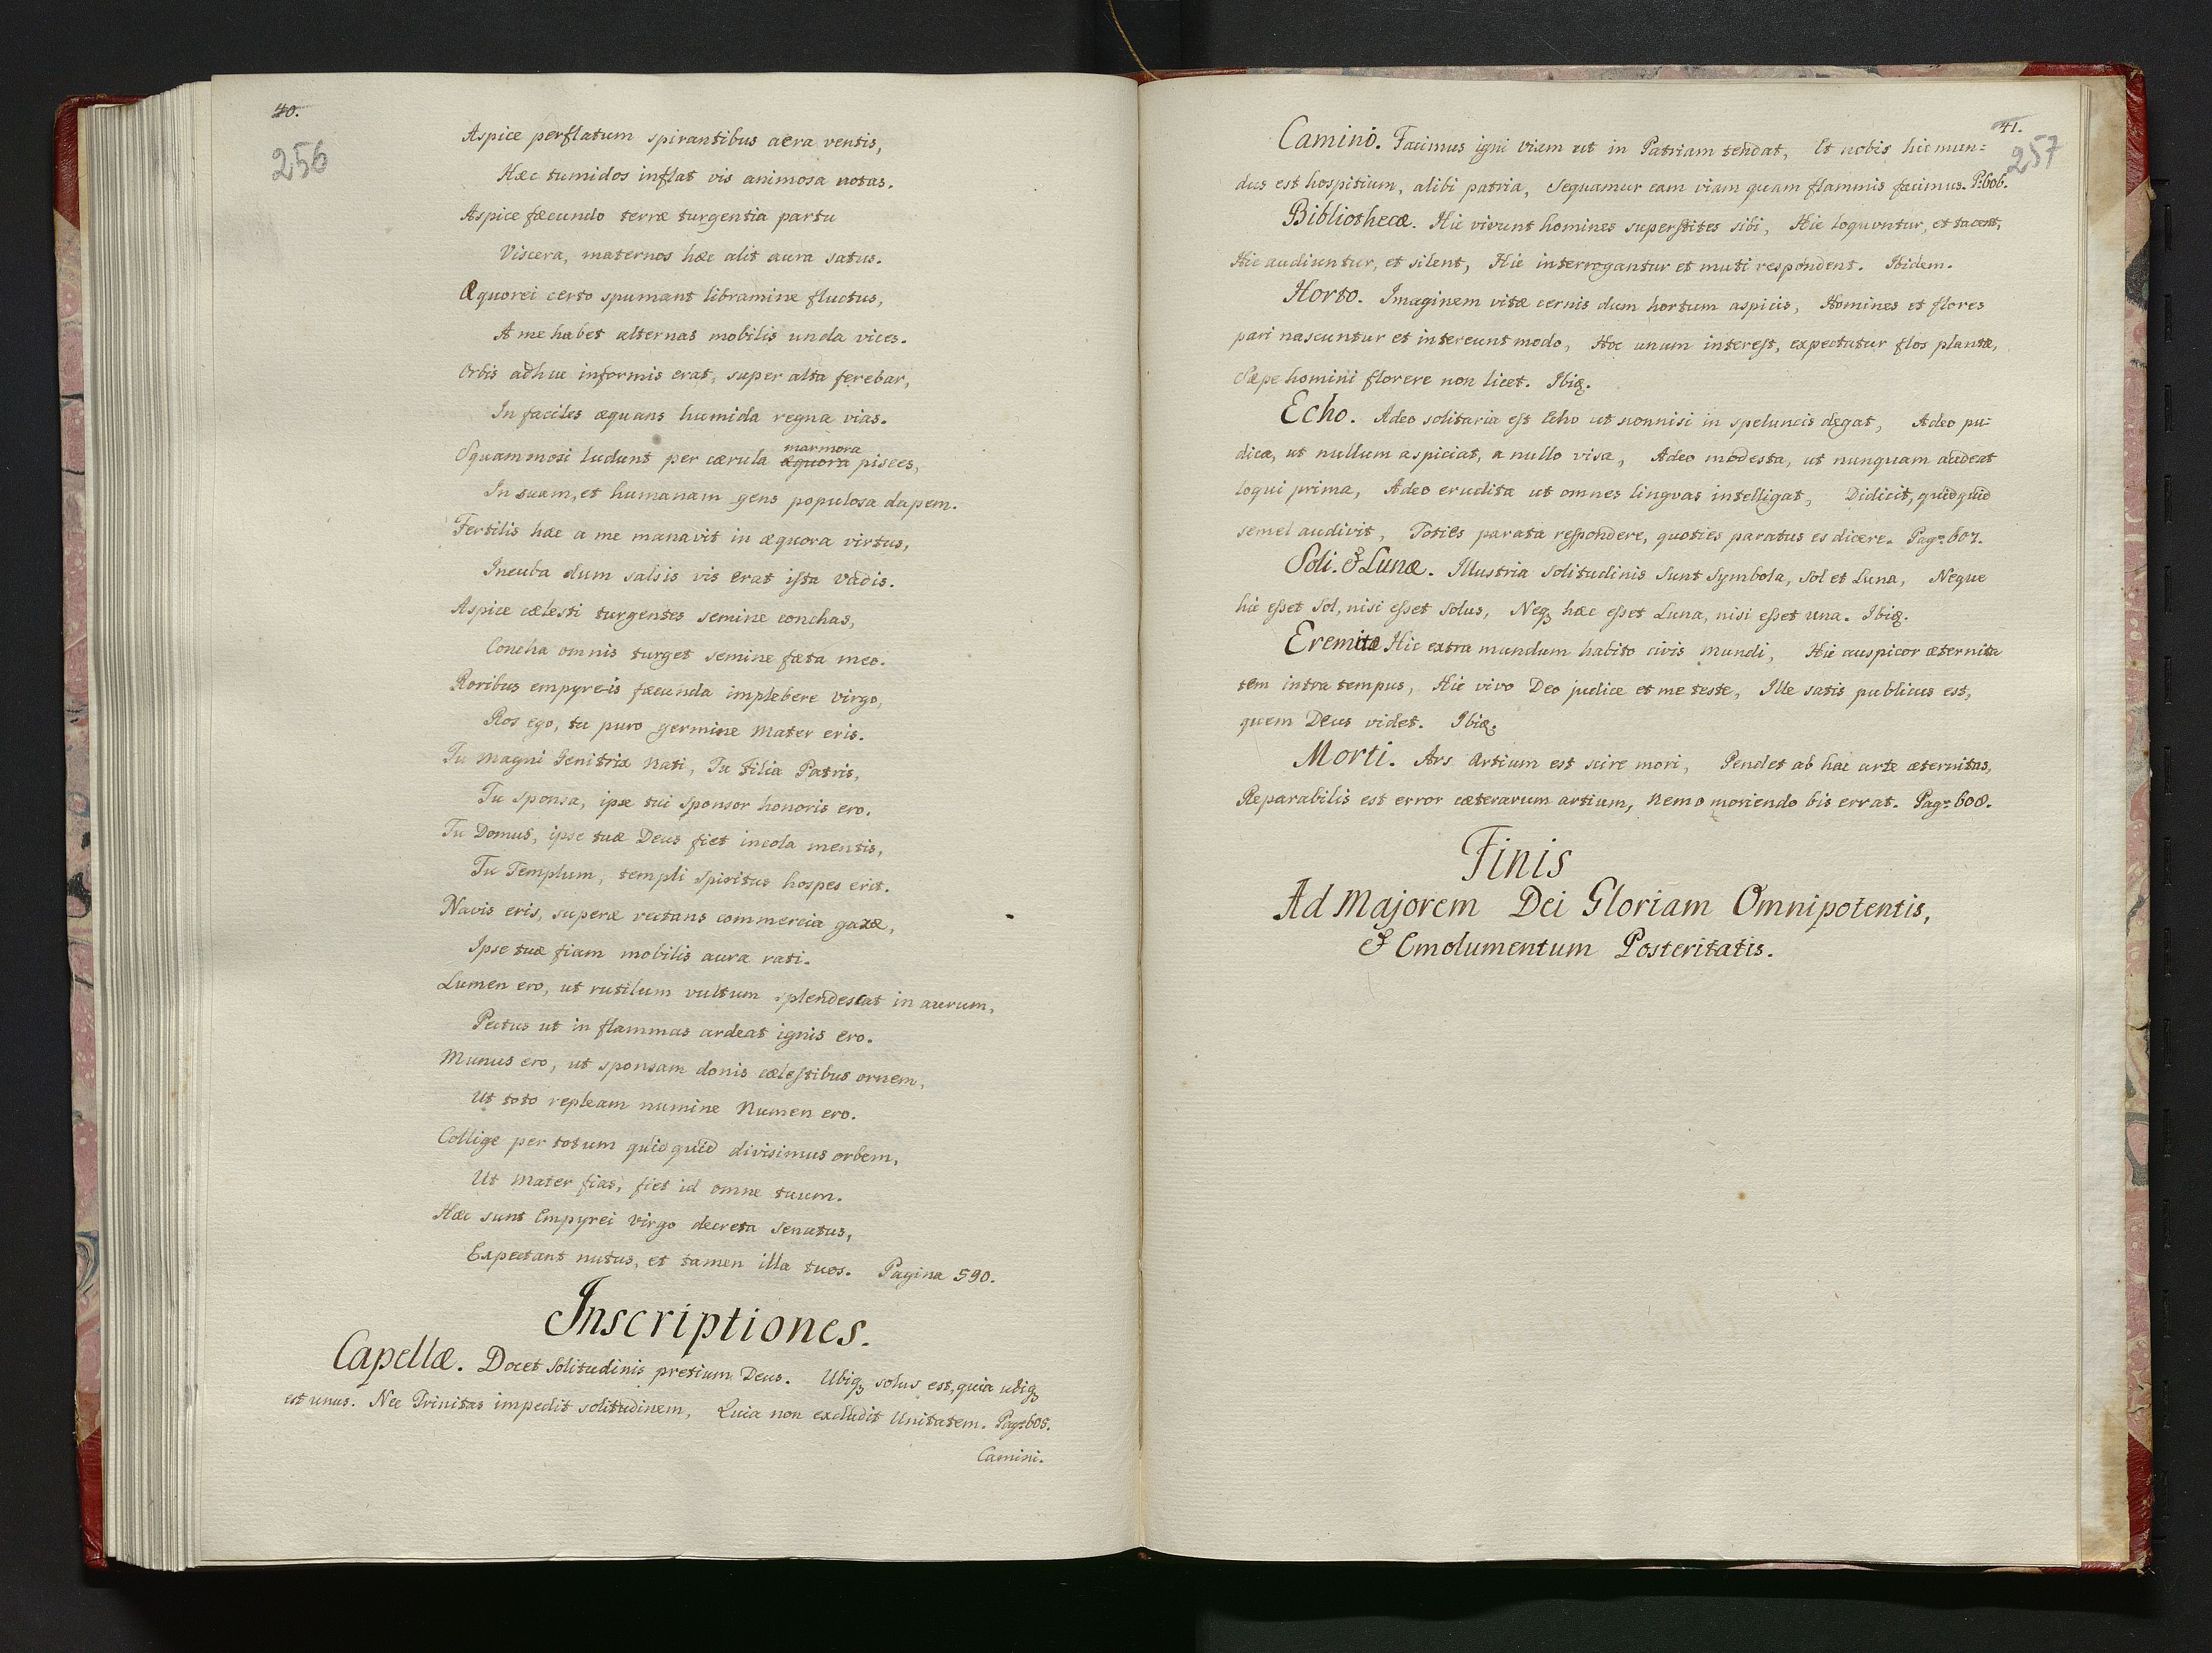 40.
256
Aspice perflatum spirantibus aera ventis,
Hæc tumidos inflat vis animosa notas.
Aspice fæcundo terræ turgentia partu
Viscera, maternos hæc alit aura satus.
Æquorei certo spumant libramine fluctus,
A me habet alternas mobilis unda vices.
Orbis adhuc informis erat, super alta ferebar,
In faciles æquans humida regna vias.
marmora
Squammosi ludunt per cærula æquora pisces,
In suam, et humanam gens populosa dapem.
Fertilis hæc a me manavit in æquora virtus,
Incuba dum salsis vis erat ista vadis.
Aspice cælesti turgentes semine conchas,
Concha omnis turget semine fæta meo.
Roribus empyreis fæcunda implebere virgo,
Ros ego, tu puro germine Mater eris.
Tu Magni Genitrix Nati, Tu Filia Patris,
Tu sponsa, ipse tui sponsor honoris ero.
Tu Domus, ipse tuæ Deus fiet incola mentis,
Tu Templum, templi Spiritus hospes erit.
Navis eris, superæ vectans commercia gazæ,
Ipse tuæ fiam mobilis aura rati.
Lumen ero, ut rutilum vultum splendescat in aurum,
Pectus ut in flammas ardeat ignis ero.
Munus ero, ut sponsam donis cælestibus ornem,
Ut toto repleam numine Numen ero.
Collige per totum quidquid divisimus orbem,
Ut Mater fias, fiet id omne tuum.
Hæc sunt Empyrei Virgo decreta Senatus,
Expectant nutus, et tamen illa tuos. Pagina 590.
Inscriptiones.
Capellæ. Docet Solitudinis pretium Deus. Ubiq; solus est, quia ubiq;
est unus. Nec Trinitas impedit solitudinem, Quia non excludit Unitatem. Pag: 605.
Camini.
41.
257
Camino. Facimus igni viam ut in Patriam tendat, Et nobis hic mun:
dus est hospitium, alibi patria, Sequamur eam viam quam flammis facimus. P: 606.
Bibliothecæ. Hic vivunt homines superstites sibi, Hic loquuntur, et tacent,
Hic audiuntur, et silent, Hic interrogantur et muti respondent. Ibidem.
Horto. Imaginem vitæ cernis dum hortum aspicis, Homines et flores
pari nascuntur et intereunt modo, Hoc unum interest, expectatur flos plantæ,
Sæpe homini florere non licet. Ibiq.
Echo. Adeo solitaria est Echo ut nonnisi in speluncis degat, Adeo pu:
dica, ut nullum aspiciat, a nullo visa, Adeo modesta, ut nunquam audeat
loqui prima, Adeo erudita ut omnes lingvas intelligat, Didicit, quidquid
semel audivit, Toties parata respondere, quoties paratus es dicere. Pag: 607.
Soli. & Lunæ. Illustria Solitudinis Sunt Symbola, Sol et Luna, Neque
hic esset Sol, nisi esset Solus, Neq; hæc esset Luna, nisi esset una. Ibiq.
Eremitæ Hic extra mundum habito civis Mundi, Hic auspicor æternita
tem intra tempus, Hic vivo Deo judice et me teste, Ille satis publicus est,
quem Deus videt. Ibiq.
Morti. Ars Artium est scire mori, Pendet ab hac arte æternitas,
Reparabilis est error cæterarum artium, Nemo moriendo bis errat. Pag: 608.
Finis
Ad Majorem Dei Gloriam Omnipotentis,
& Emolumentum Posteritatis.